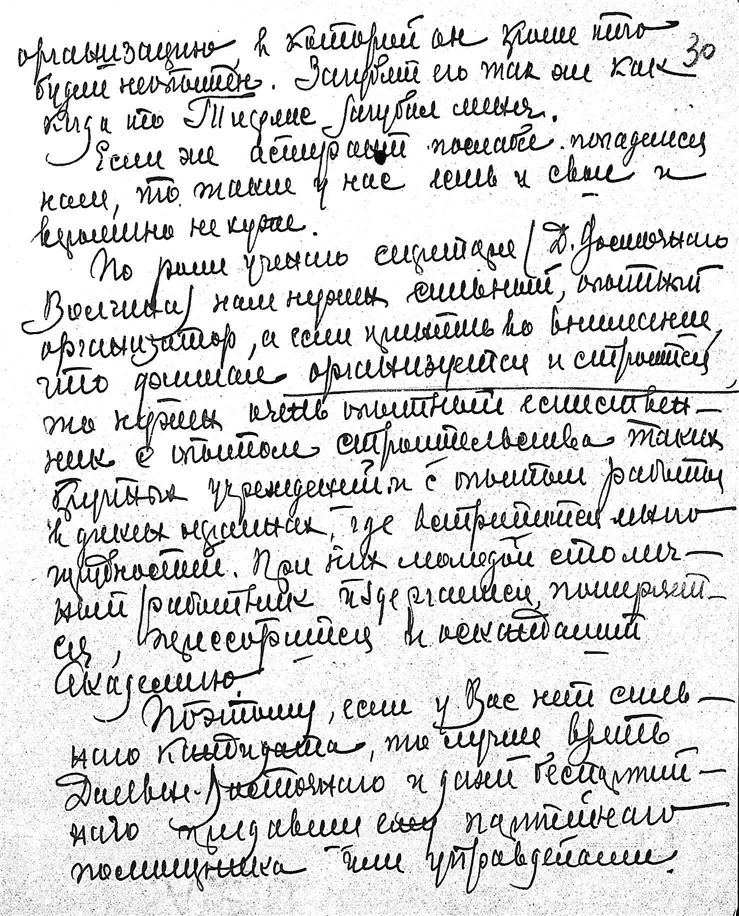 30
организацию, в которой он кроме того
будет неопытен. Загубят его так же как
когда то Тидеман загубил меня.
Если же аспирант послабе попадется
нам, то такие у нас есть и свои и
вероятно не хуже.
По роли ученого секретаря (Д. Восточного
Волчина) нам нужен сильный, опытный
организатор, а если принять во внимание,
что должна организуется и строится,
то нужен очень опытный естествен-
ник с опытом строительства таких
крупных учреждений и с опытом работы
в диких краинах, где встретится много
трудностей. При них молодой столич-
ный работник издергается, потеряет-
ся, перессорится и оскандалит
Академию.
Поэтому, если у Вас нет силь-
ного кандидата, то лучше взять
Дальне-Восточного и даже беспартий-
ного придавши ему партийного
помощника или управделами.